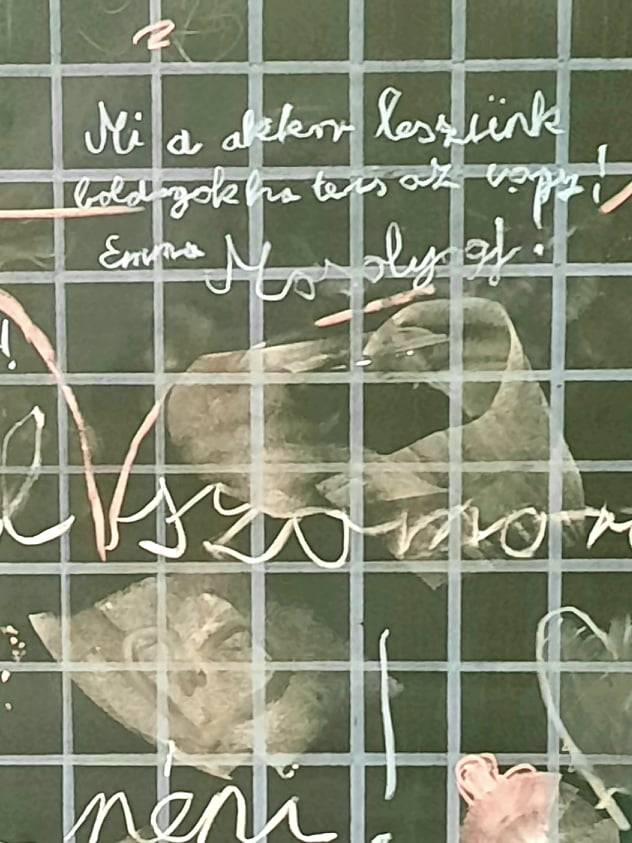 Mi a akkor leszünk
boldogok ha te is az vagy!
Emma Mosolyogj!
!
szomo
néni!